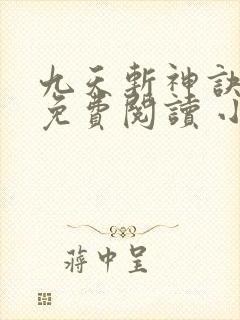 九天斬神訣
免費閱讀 小
蔣中呈